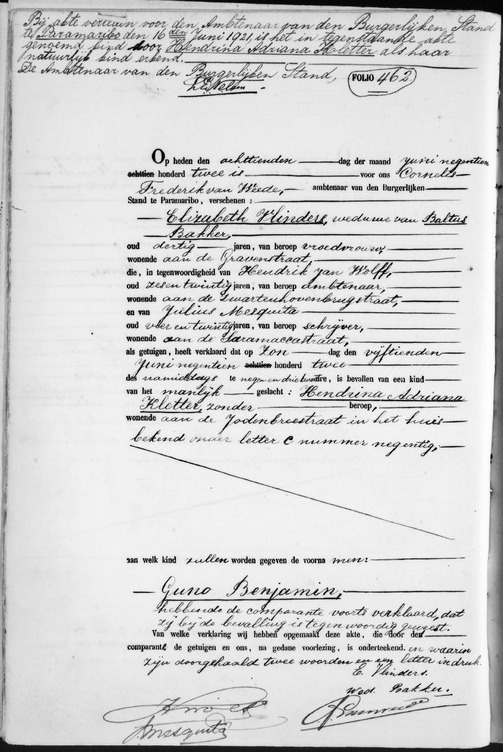 Bij akte verleden voor den Ambtenaar van den Burgerlijken Stand
te Paramaribo den 16den Juni 1921 is het in tegenstaande akte
genoemd kind door Hendrina Adriana Kletter als haar
natuurlijk kind erkend.
De Ambtenaar van den Burgerlijken Stand,
FOLIO 462
Op heden den achttienden dag der maand Juni negentien
achttien honderd twee is voor ons Cornelis
Frederik van Weede, ambtenaar van den Burgerlijken
Stand te Paramaribo, verschenen :
Elizabeth Flinders, weduwe van Baltus
Bakker,
oud dertig jaren, van beroep vroedvrouw
wonende aan de Gravenstraat,
die, in tegenwoordigheid van Hendrik Jan Wolff,
oud zesentwintig jaren, van beroep ambtenaar,
wonende aan de Zwartenhovenbrugstraat,
en van Julius Mesquita
oud vierentwintig jaren, van beroep schrijver,
wonende aan de Saramaccastraat,
als getuigen, heeft verklaard dat op Zon dag den vijftienden
Juni negentien achttien honderd twee
des namiddags te negen en drie kwartier, is bevallen van een kind
van het manlijk geslacht : Hendrina Adriana
Kletter, zonder beroep,
wonende aan de Jodenbreestraat in het huis
bekend onder letter C nummer negentig,
aan welk kind zullen worden gegeven de voorna men:
Guno Benjamin,
hebbende de comparante voorts verklaard, dat
zij bij de bevalling is tegenwoordig geweest.
Van welke verklaring wij hebben opgemaakt deze akte, die door de
comparante de getuigen en ons, na gedane voorlezing, is onderteekend. en waarin
zijn doorgehaald twee woorden en een letter in druk.
E. Flinders.
Wed. Bakker.
Mesquita